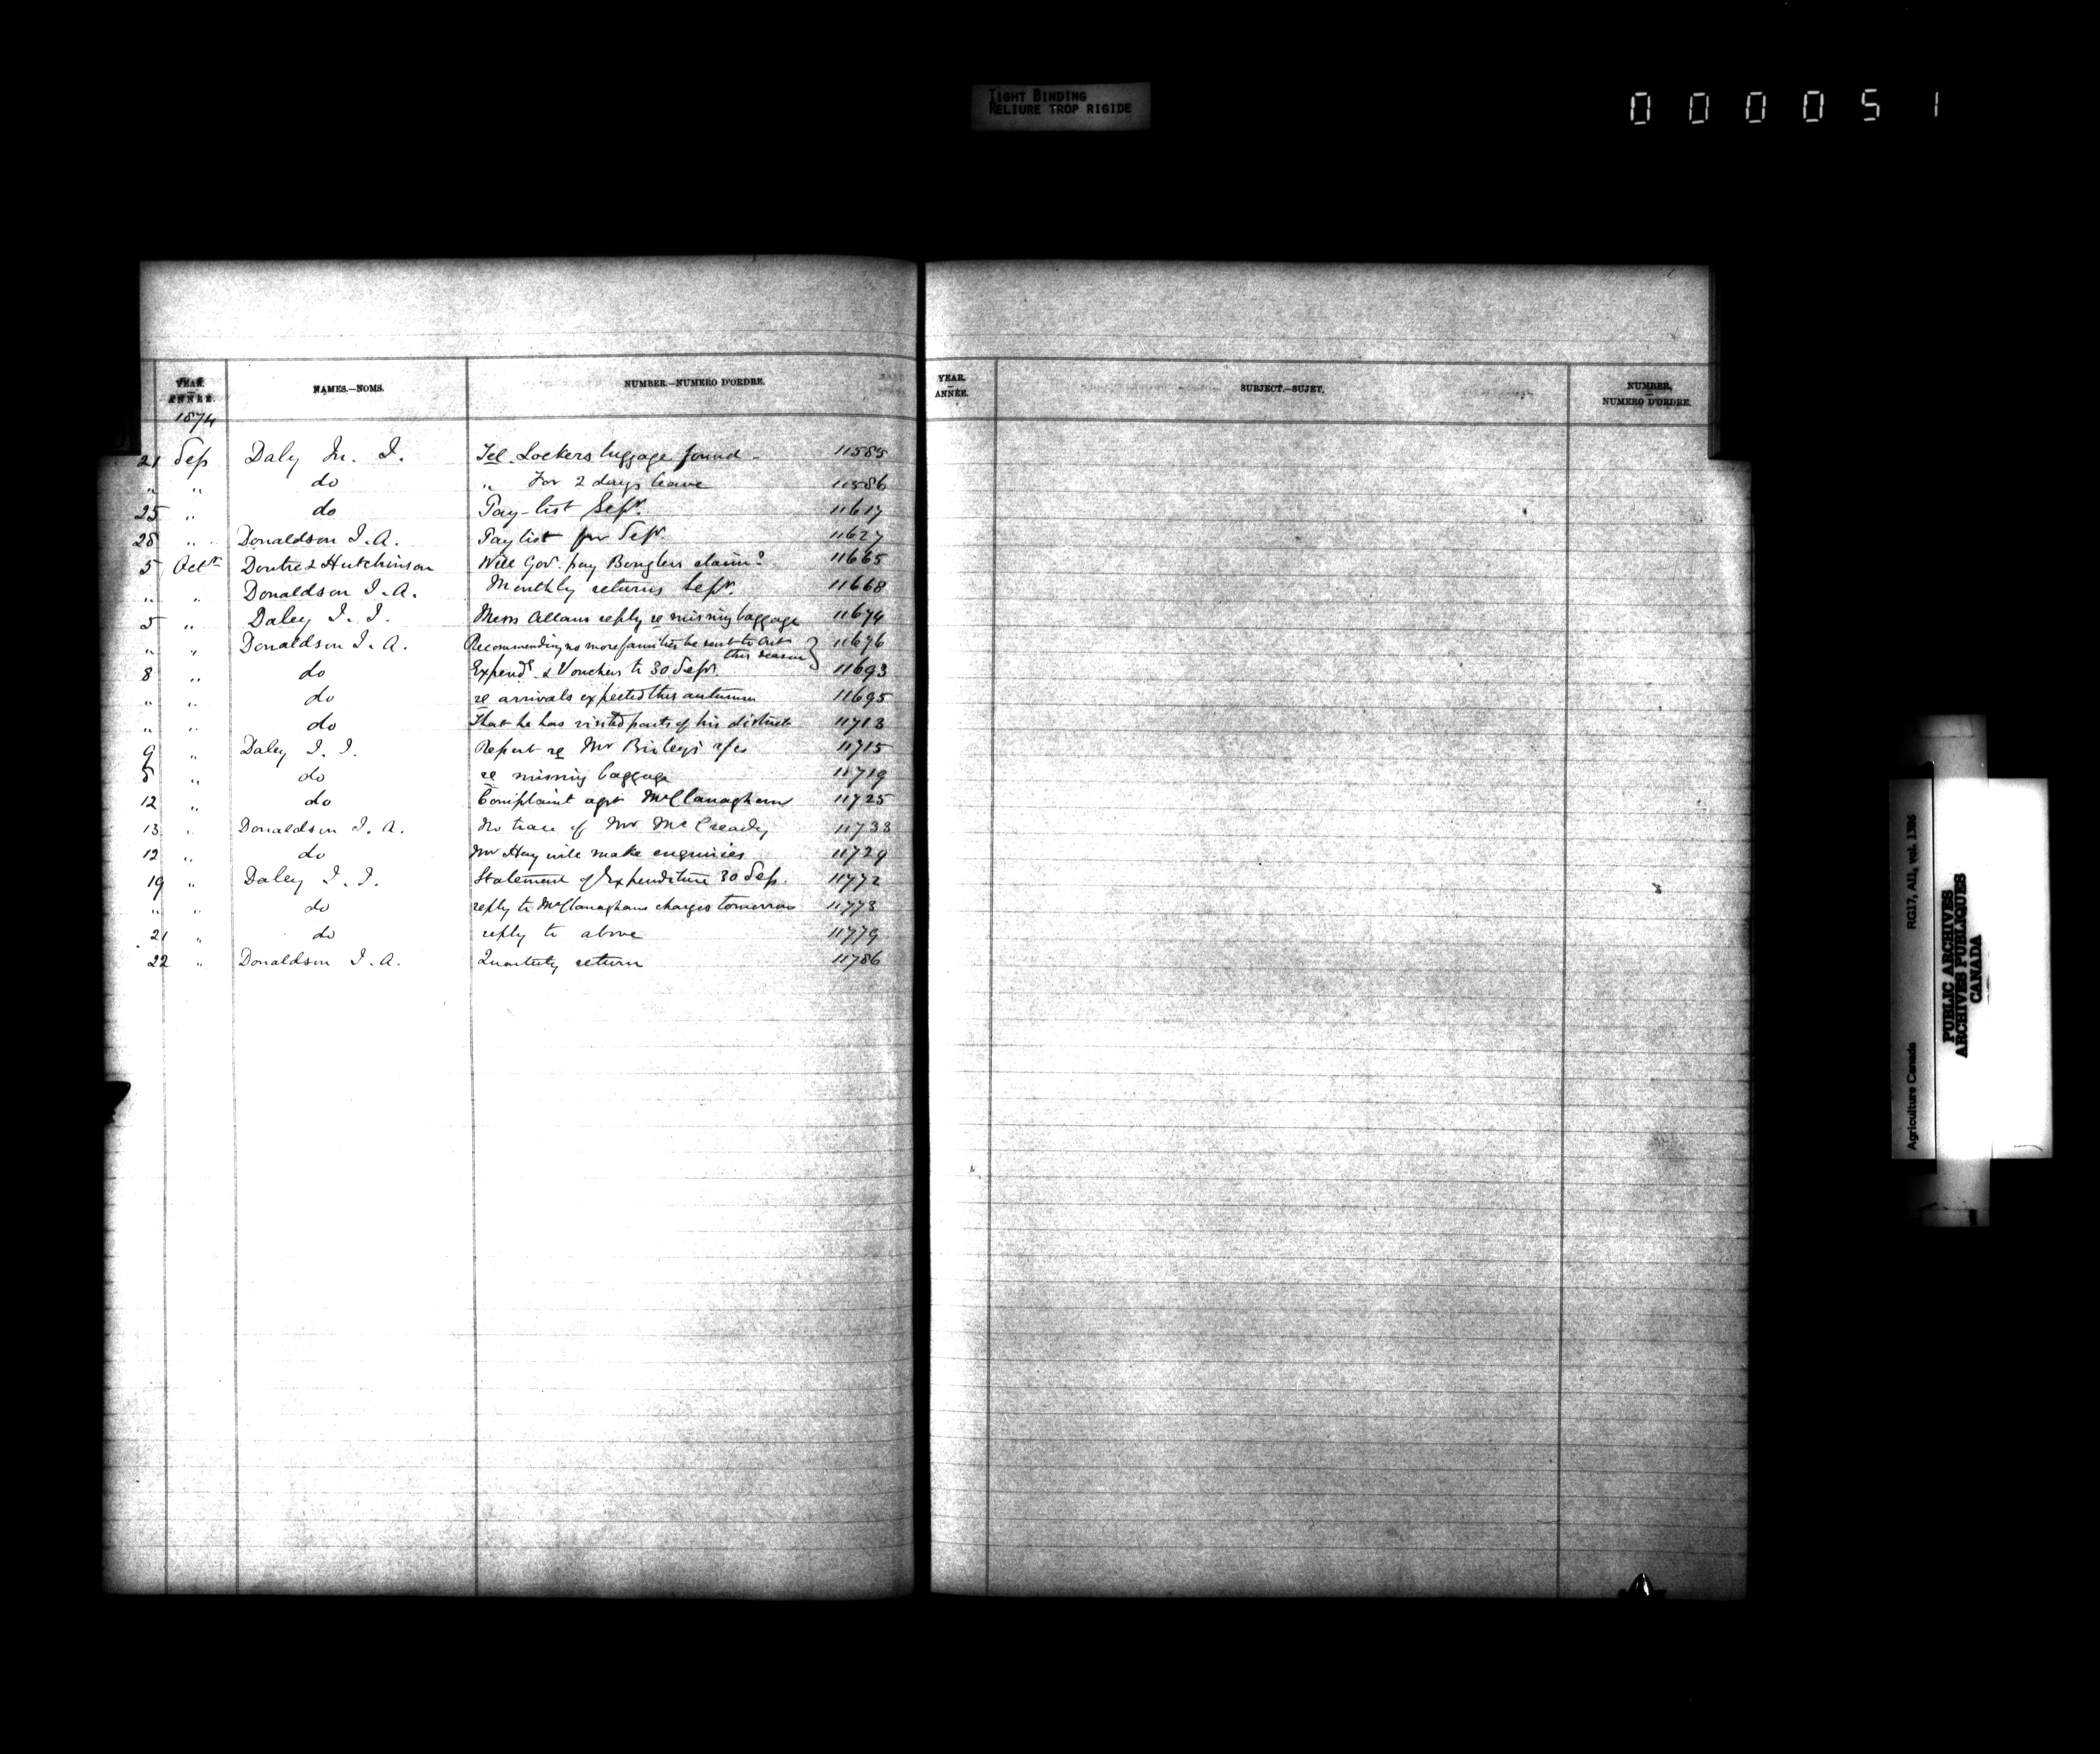 TIGHT BINDING
RELIURE TROP RIGIDE
000051
YEAR.
ANNÉE.
NAMES.—NOMS.
NUMBER.—NUMERO D'ORDRE.
1874
21 Sep Daly M. J. Tel. Lockers luggage found - 11585
" " do " For 2 days leave 11586
25 " do Pay-list Sepr. 11617
28 " Donaldson J. A. Pay list for Sepr 11627
5 Oct Doutre & Hutchinson Will Gov. pay claim? 11665
" " Donaldson J. A. Monthly returns Sepr. 11668
5 " Daley J. J. Mess Allans reply re missing baggage 11674
" " Donaldson J. A. Recommending no more families be sent to Ont 11676
this season
8 " do Expend. & Vouchers to 30 Sepr. 11693
" " do re arrivals expected this autumn 11695
" " do That he has visited parts of his district 11713
9 " Daley J. J. Report re Mr 11715
8 " do re missing baggage 11719
12 " do Complaint agst McClanaghan 11725
13 " Donaldson J. A. No trace of Mr McCready 11733
12 " do Mr Hay will make enquiries 11729
19 " Daley J. J. Statement of Expenditure 30 Sep. 11772
" " do reply to McClanaghans charges tomorrow 11773
21 " do reply to above 11779
22 " Donaldson J. A. Quarterly return 11786
YEAR.
ANNÉE.
SUBJECT.—SUJET.
NUMBER,
NUMERO D'ORDRE.
Agriculture Canada RG17, AII, vol. 1386
PUBLIC ARCHIVES
ARCHIVES PUBLIQUES
CANADA